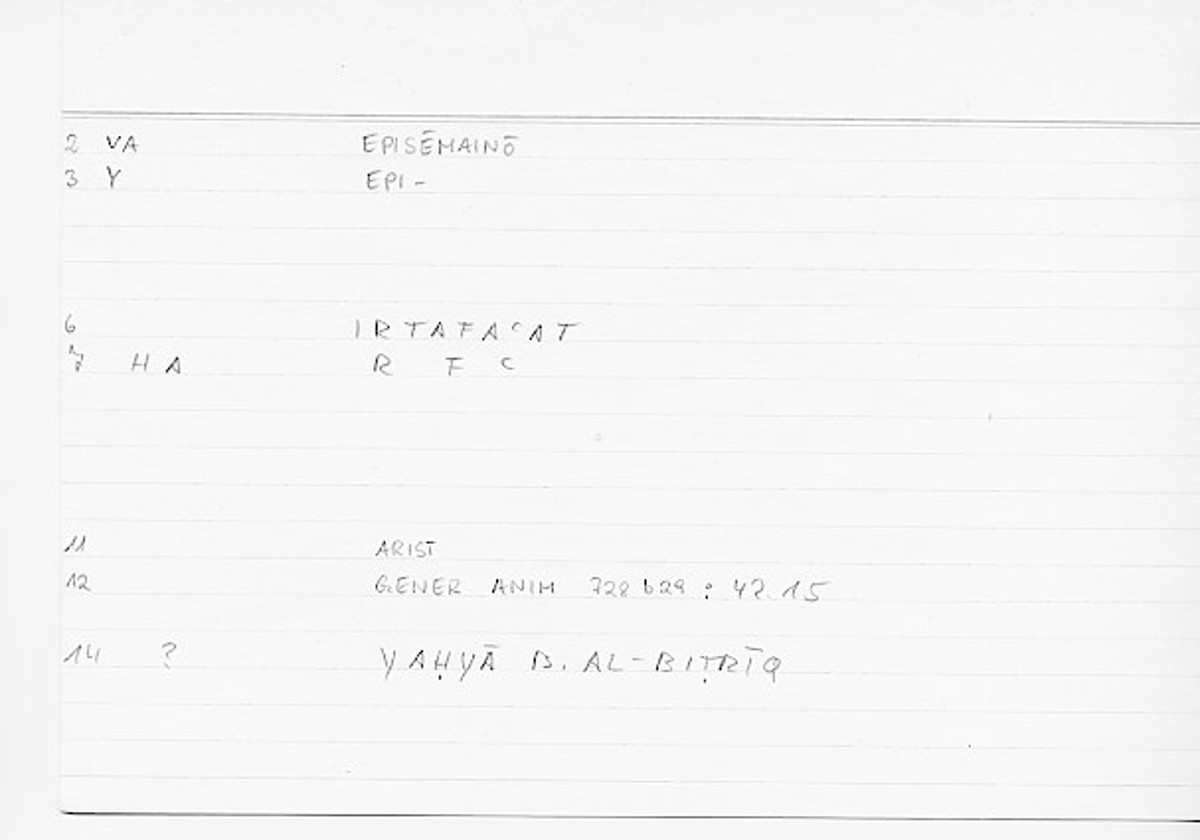 2 VA EPISĒMAINŌ
3 Y EPI-
6 IRTAFAʿAT
7 HA R F ʿ
11 ARIST
12 GENER ANIM 728b29 : 42.15
14 ? YAḤYĀ B. AL-BIṬRĪQ